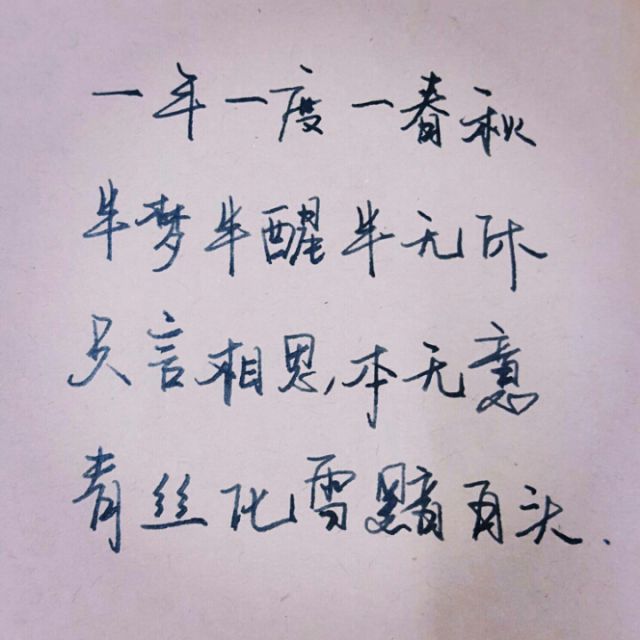 一年一度一春秋
半梦半醒半无休
只言相思,本无意
青丝化雪黯白头.